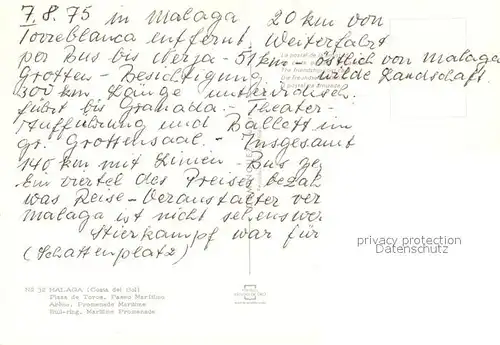 7.8.75 in Malaga, 20 km von
Torreblanca entfernt. Weiterfahrt
per Bus bis Nerja - 51 km - östlich von Malaga
Grotten - Besichtigung, wilde Landschaft.
300 km Länge unterirdisch.
führt bis Granada. - Theater-
Aufführung und Ballett im
gr. Grottensaal. - Insgesamt
140 km mit Linien - Bus ge
Ein viertel des Preises bezah
was Reise - Veranstalter ver
Malaga ist nicht sehenswer
Stierkampf war für
(Schattenplatz)
privacy protection
watermark
NE 32 MALAGA (Costa del Sol)
Plaza de Toros, Paseo Marítimo
Arènes, Promenade Maritime
Bull-ring, Maritime Promenade